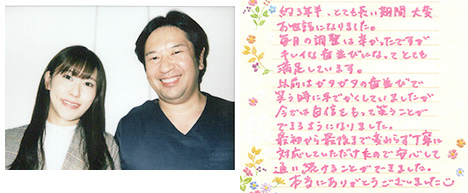 約3年半、とても長い期間 大変
お世話になりました。
毎月の調整は辛かったですが
キレイな歯並びになってとても
満足しています。
以前はガタガタの歯並びで
笑う時に手でかくしていましたが
今では自信をもって笑うことが
できるようになりました。
最初から最後まで変わらず丁寧に
対応していただけたので安心して
通い続けることができました。
本当にありがとうございました